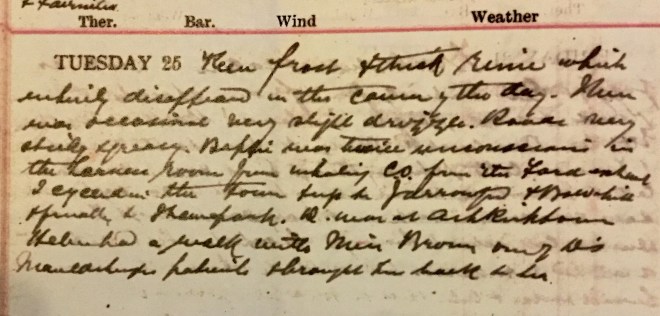 Ther. Bar. Wind Weather
TUESDAY 25 Keen frost & thick rime which
entirely disappeared in the course of the day. There
was occasional very slight drizzle. Roads very
sticky greasy. was twice unconscious in
the Harness room from inhaling CO. from the Ford exhaust
I cycled in the town & up to & Bowhill
& Thornfield. D. was at Ashkirktown
Helen had a walk with Miss Brown one of Ds
patients & brought her back to